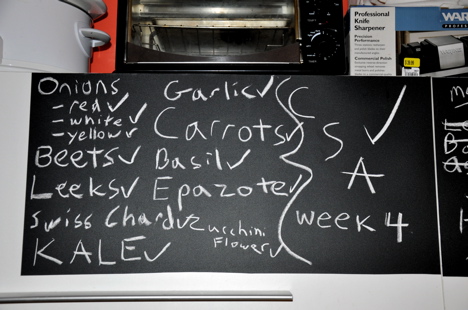 Professional
Knife
Sharpener
Precision
Performance
Commercial Polish
WAR
Onions
- red ✓
- white ✓
- yellow ✓
Beets ✓
Leeks ✓
Swiss Chard ✓
KALE ✓
Garlic ✓
Carrots ✓
Basil ✓
Epazote ✓
Zucchini
Flower ✓
C
S
A
✓
week 4